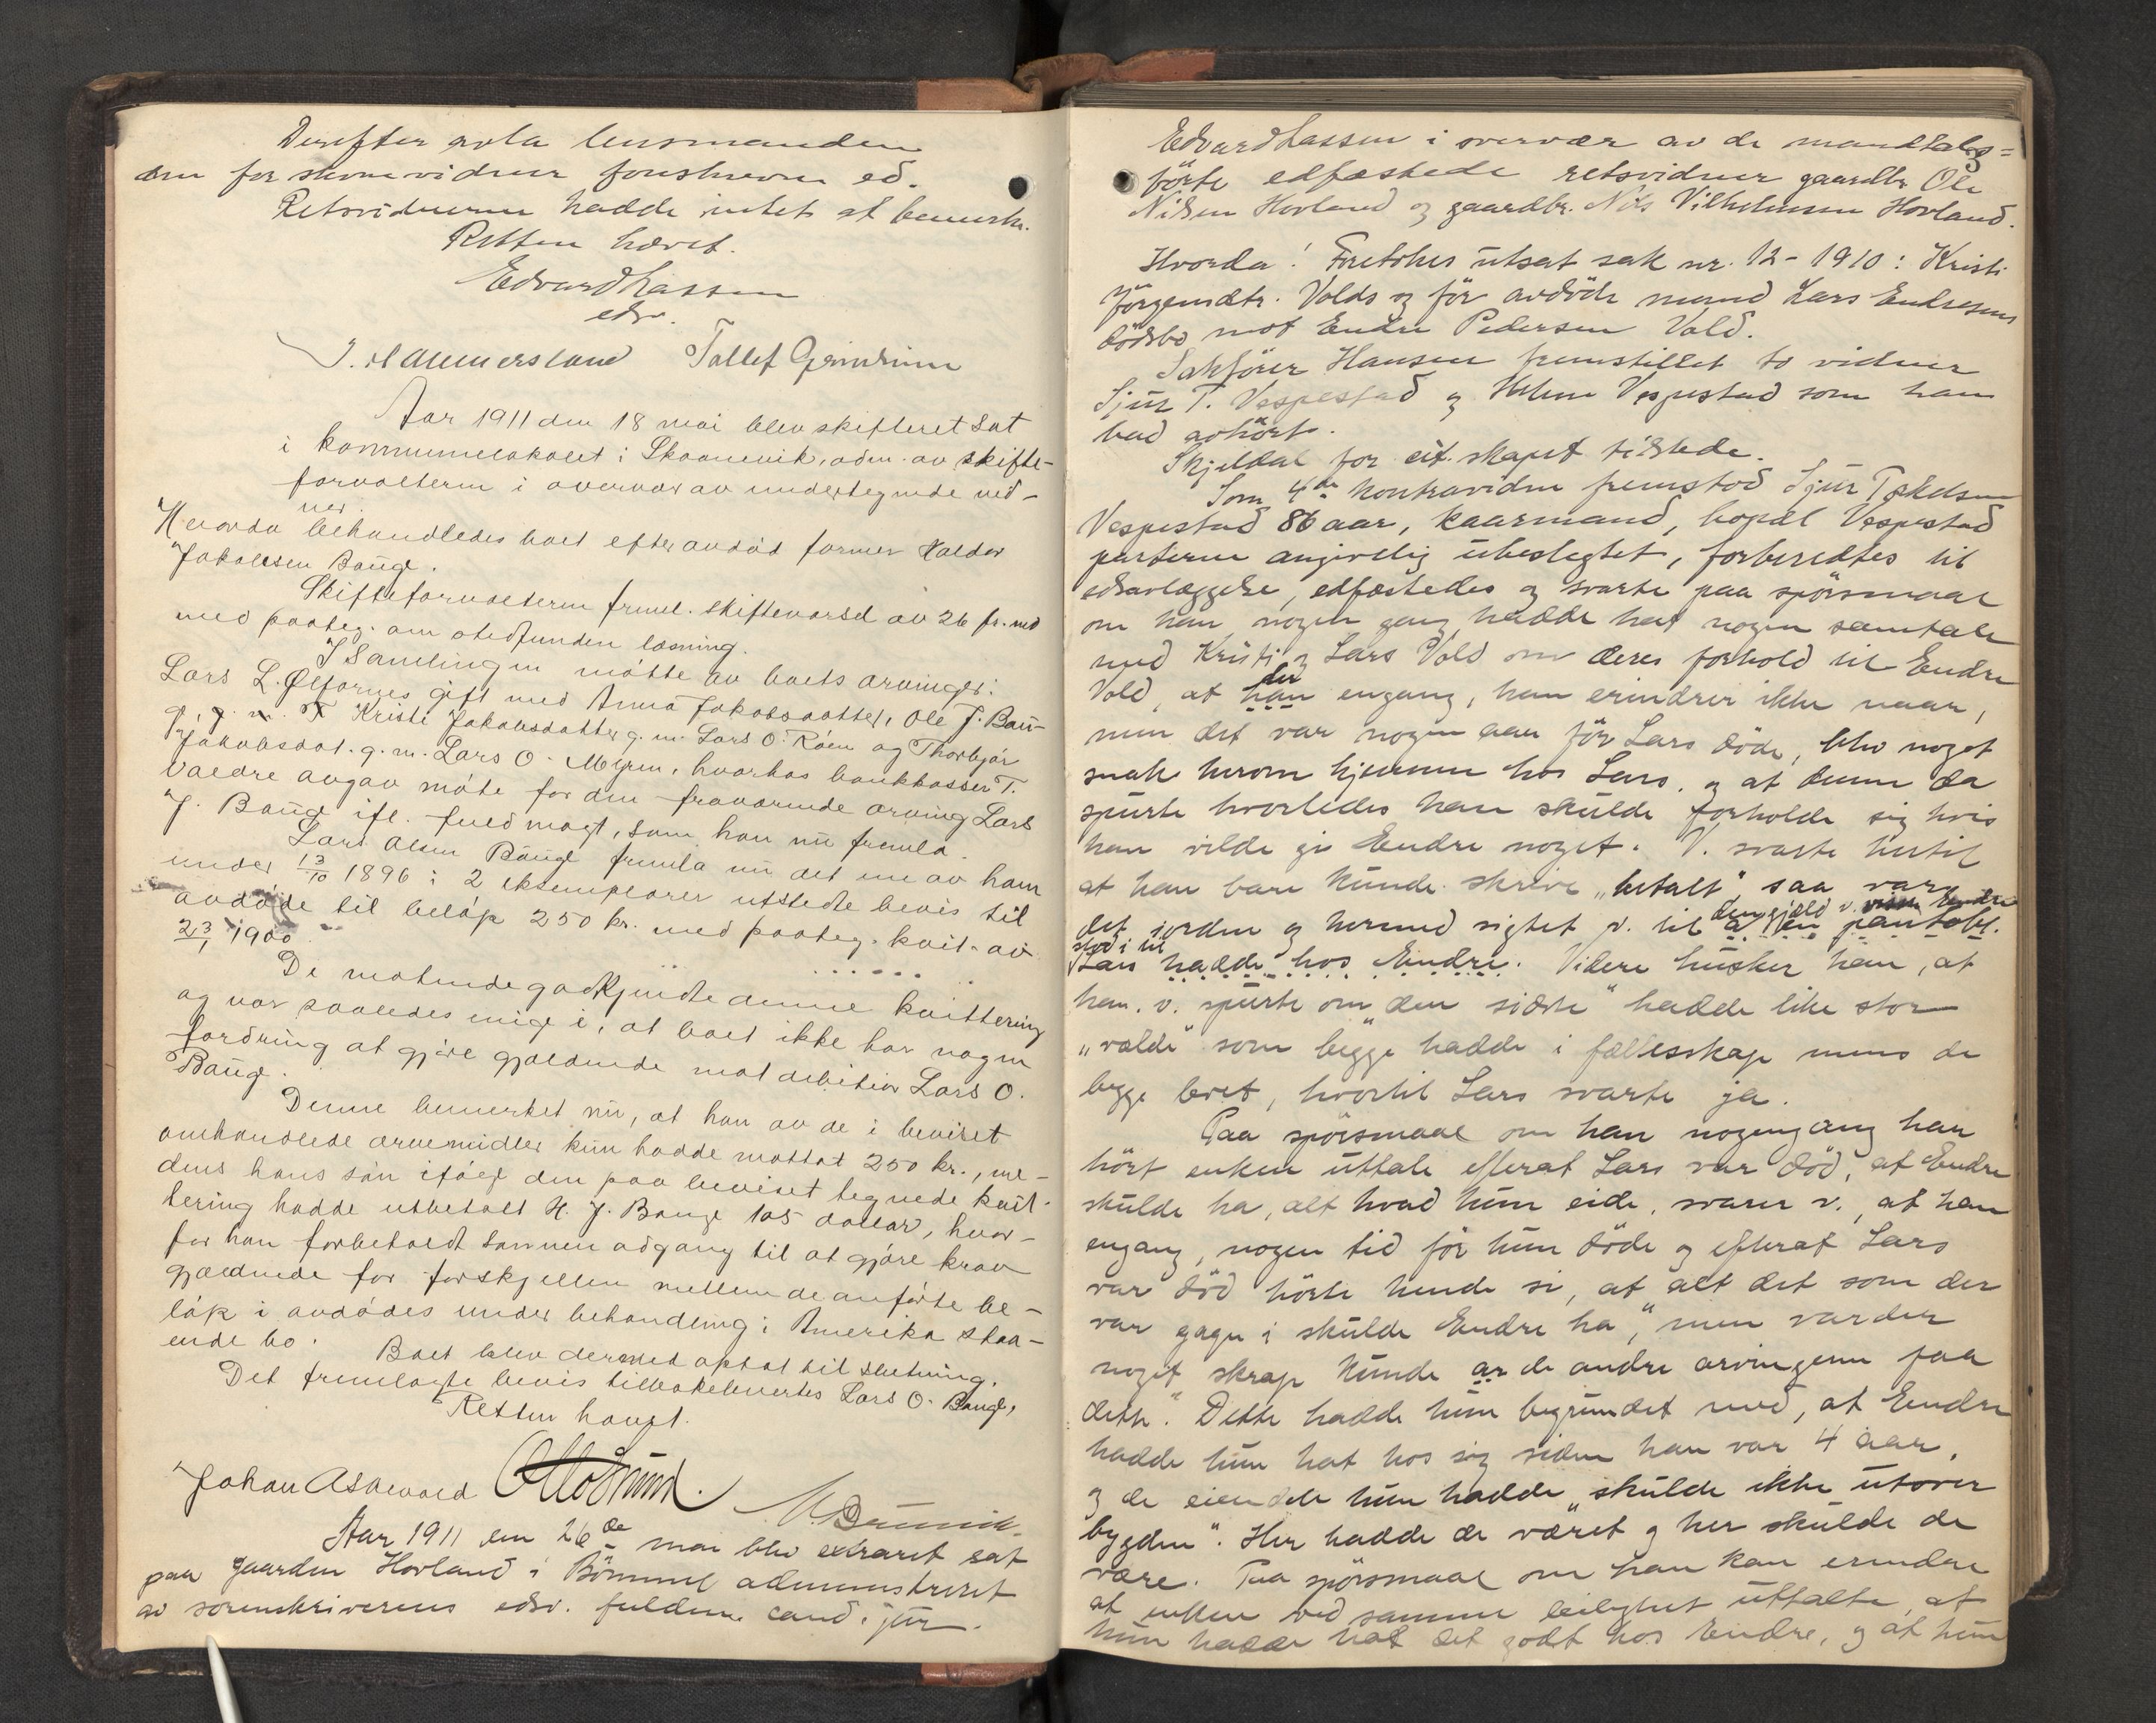 Derefter avla lensmanden
den for skjønsvidner foreskrevne ed.
Retsvidnerne hadde intet at bemerke.
Retten hævet.
Edvard Lassen
edsv.
J. Hammersland Tollef Grindheim
Aar 1911 den 18 mai blev skifteret sat
i kommunelokalet i Skaanevik, adm. av skifte-
forvalteren i overvær av undertegnede vid-
ner.
Hvorda behandledes boet efter avdød farmer Halder
Jakobsen Bauge.
Skifteforvalteren freml. skiftevarsel av 26 f. md
med paateg. om stedfunden læsning.
I Samlingen møtte av boets arvinger:
Lars L. Ølfarnes gift med Anna Jakobsdatter, Ole J. Bau-
ge, Kristi Jakobsdatter g. m. Lars O. Røen og Thorbjør
Jakobsdat. g. m. Lars O. Myren, hvorhos bankkasser T.
Valdre avgav møte for den fraværende arving Lars
J. Bauge ifl. fuldmagt, som han nu fremla.
Lars Olsen Bauge fremla nu det ene av ham
under 13/10 1896 i 2 eksemplarer utstedte bevis til
avdøde til beløp 250 kr. med paateg. kvit. av
23/1 1900.
De møtende godkjendte denne kvittering
og var saaledes enige i, at boet ikke har nogen
fordring at gjøre gjældende mot debitor Lars O.
Bauge.
Denne bemerket nu, at han av de i beviset
omhandlede arvemidler kun hadde mottat 250 kr., me-
dens hans søn ifølge den paa beviset tegnede kvit-
tering hadde utbetalt H. J. Bauge 105 dollar, hvor-
for han forbeholdt sønnen adgang til at gjøre krav
gjældende for forskjellen mellem de anførte be-
løp i avdødes under behandling i Amerika staa-
ende bo.
Boet blev dermed optat til slutning.
Det fremlagte bevis tilbakelevertes Lars O. Bauge.
Retten hævet.
Johan Askevold
Aar 1911 den 26de mai blev extraret sat
paa gaarden Hovland i Bømmel administreret
av sorenskriverens edsv. fuldm. cand. jur.
Edvard Lassen i overvær av de mandtals-
førte edfæstede retsvidner gaardbr. Ole
Nilsen Hovland og gaardbr. Nils Vilhelmsen Hovland.
Hvorda: Foretokes utsat sak nr. 12 - 1910: Kristi
Jørgensdtr. Volds og før avdøde mand Lars Endresens
dødsbo mot Endre Pedersen Vold.
Sakfører Hansen fremstillet to vidner
Sjur T. Vespestad og Helene Vespestad som han
bad avhørt.
Skjeldal for cit.skapet tilstede.
Som 4de kontravidne fremstod Sjur
Vespestad 86 aar, kaarmand, bopæl Vespestad
parterne angivelig ubeslegtet, forberedtes til
edsavlæggelse, edfæstedes og svarte paa spørsmaal
om han nogen gang hadde hat nogen samtale
med Kristi og Lars Vold om deres forhold til Endre
Vold, at han der engang, han erindrer ikke naar,
men det var nogen aar før Lars døde, blev noget
snak herom hjemme hos Lars, og at denne da
spurte hvorledes han skulde forholde sig hvis
han vilde gi Endre noget. V. svarte hertil
at han bare kunde skrive "betalt", saa var
det i orden og hermed sigtet v. til den gjæld v. Endre
stod i til
a en pantobl.
Lars hadde hos Endre. Videre husker han, at
han. v. spurte om "den sidste" hadde like stor
"valde" som begge hadde i fællesskap mens de
begge levet, hvortil Lars svarte ja.
Paa spørsmaal om han nogengang har
hørt enken uttale efterat Lars var død, at Endre
skulde ha, alt hvad hun eide, svarer v., at han
engang, nogen tid før hun døde og efterat Lars
var død hørte hende si, at "alt det som der
var gagn i skulde Endre ha", men var der
noget skrap kunde ar de andre arvingerne faa
dette." Dette hadde hun begrundet med, at Endre
hadde hun hat hos sig siden han var 4 aar,
og de eiendele hun hadde "skulde ikke utover
bygden". Her hadde de været og her skulde de
være. Paa spørsmaal om han kan erindre
at enken ved samme leilighet uttalte, at
hun hadde hat det godt hos Endre, og at hun